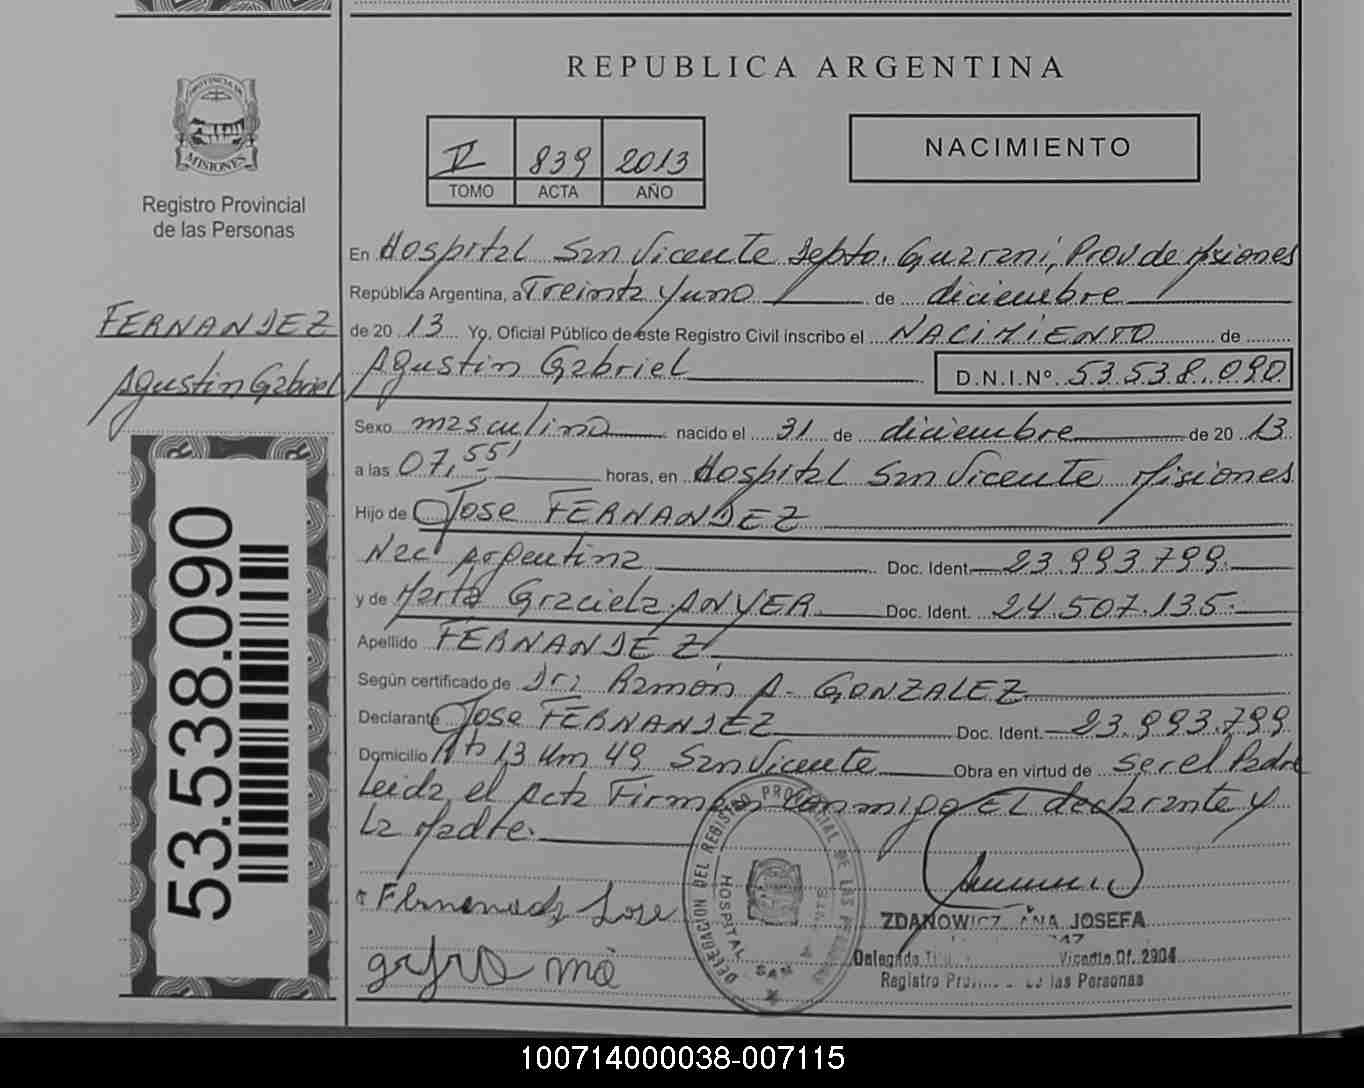 REPUBLICA ARGENTINA
PROVINCIA DE
MISIONES
Registro Provincial
de las Personas
V 839 2013
TOMO ACTA AÑO
NACIMIENTO
En Hospital San Vicente Depto. Guarani, Prov de Misiones
República Argentina, a Treinta y uno de diciembre
de 20 13 Yo, Oficial Público de este Registro Civil inscribo el NACIMIENTO de
Agustin Gabriel D.N.I.Nº 53.538.090
FERNANDEZ
Agustin Gabriel
53.538.090
Sexo masculino nacido el 31 de diciembre de 20 13
a las 07,55' horas, en Hospital San Vicente Misiones
Hijo de Jose FERNANDEZ
Nac argentina Doc. Ident. 23.993.799
y de Marta Graciela ANYER Doc. Ident. 24.507.135
Apellido FERNANDEZ
Según certificado de Dr: Ramón A. GONZALEZ
Declarante Jose FERNANDEZ Doc. Ident. 23.993.799
Domicilio 13 Km 49 San Vicente Obra en virtud de ser el Padre
Leida el Acta Firman conmigo EL declarante y
La Madre.
Jose
DELEGACION DEL REGISTRO PROVINCIAL DE LAS PERSONAS
HOSPITAL SAN
ZDANOWICZ ANA JOSEFA
Vicente Of. 2904
Registro las Personas
100714000038-007115